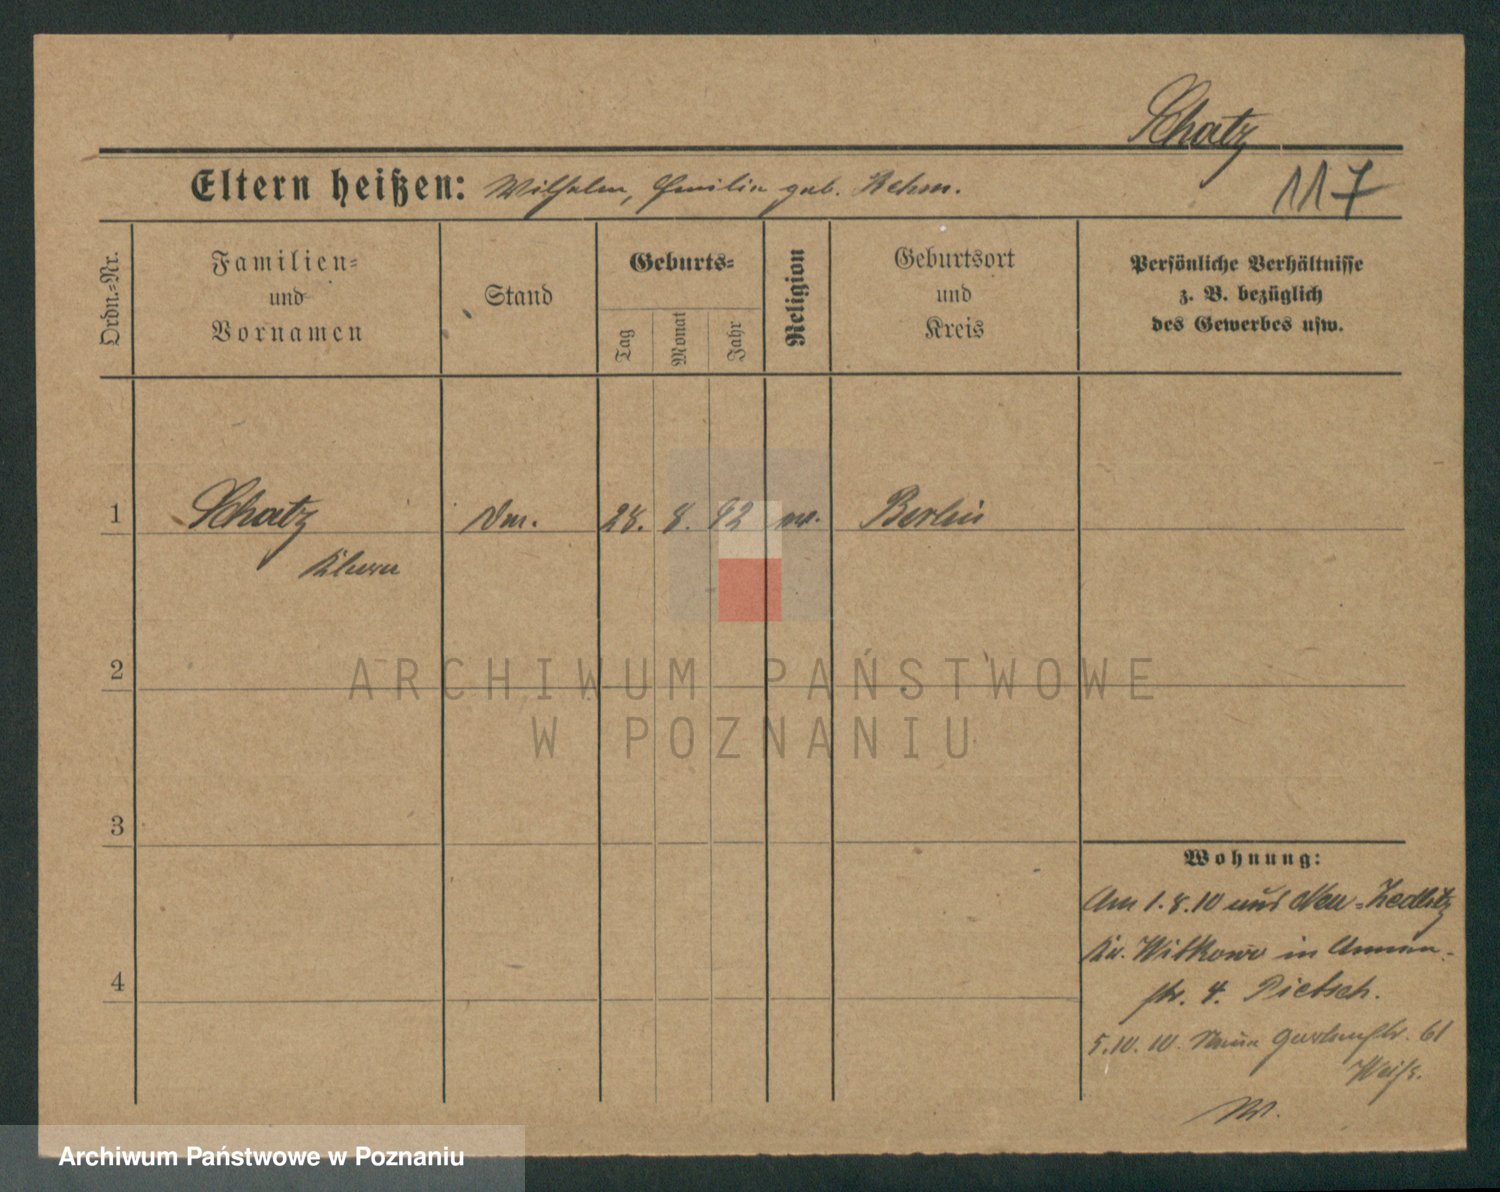 Schatz
Eltern heißen: Wilhelm, Emilie geb. Rehm.
117
Ordn.=Nr.
Familien=
und
Vornamen
Stand
Geburts=
Tag
Monat
Jahr
Religion
Geburtsort
und
Kreis
Persönliche Verhältnisse
z. B. bezüglich
des Gewerbes usw.
1 Schatz 28. 8. 92 Berlin
Klara
2
ARCHIWUM PAŃSTWOWE
W POZNANIU
3
Wohnung:
Am 1.8.10 aus Neu=Zedlitz
Kr. Witkowo in
4
str. 4. Pietsch.
5.10.10. Gartenstr. 61
Weiß.
Archiwum Państwowe w Poznaniu